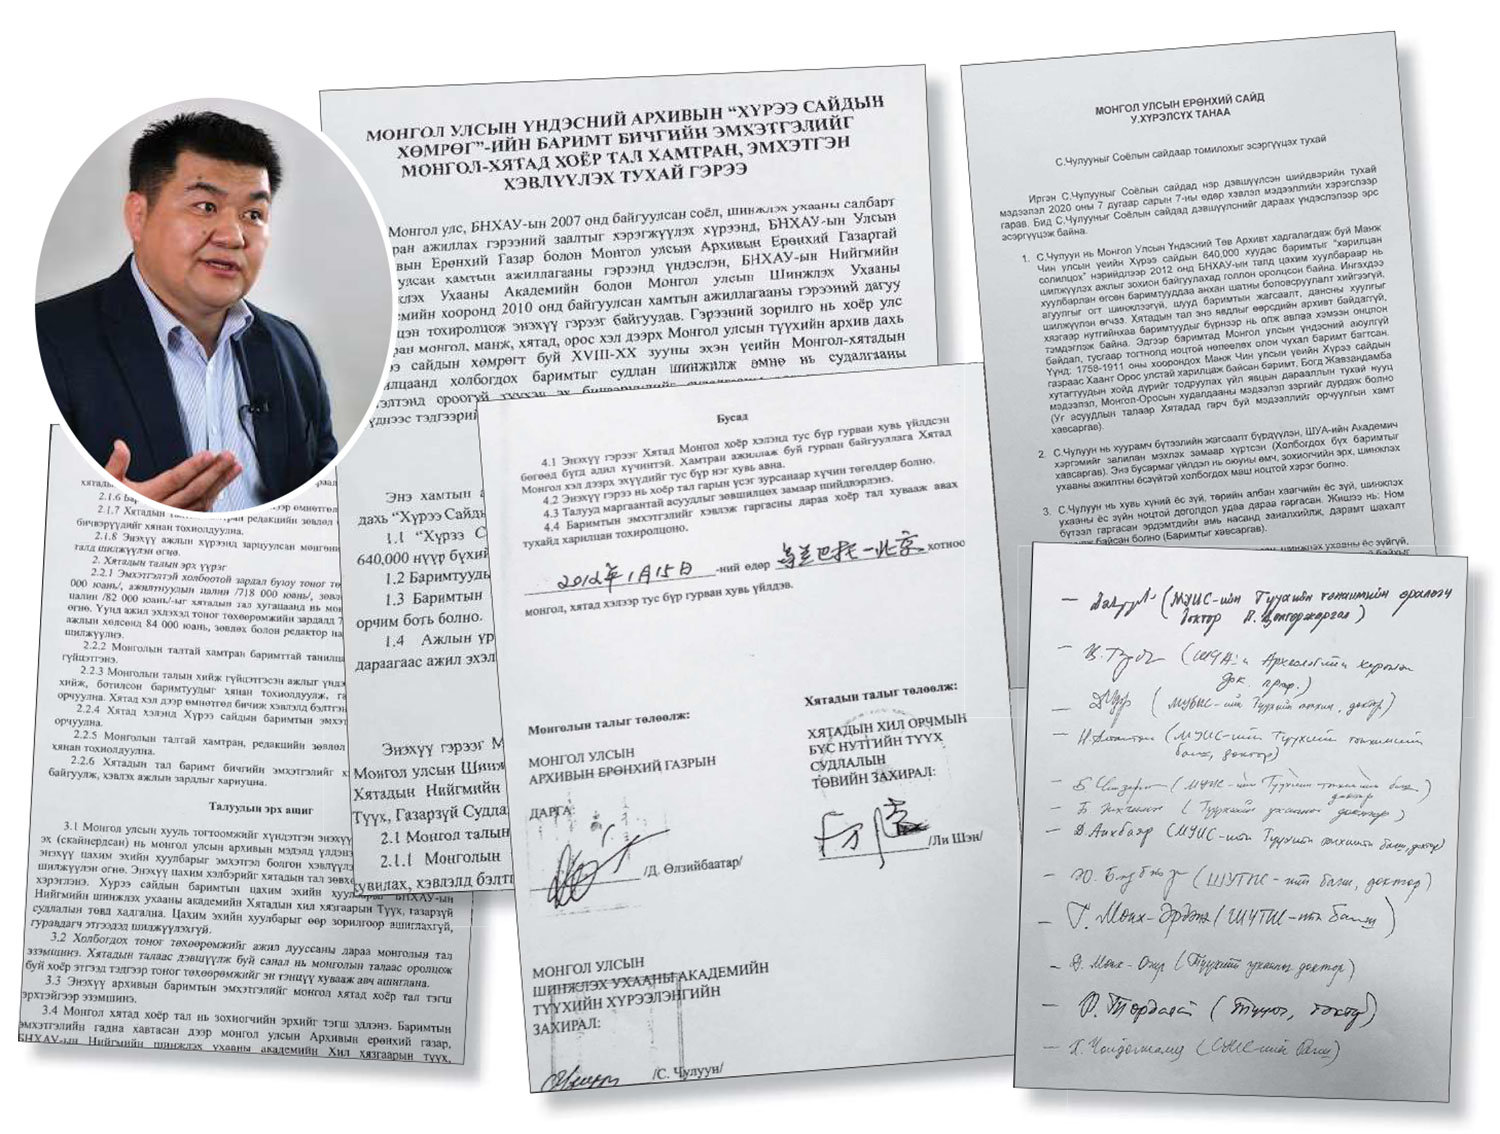 МОНГОЛ УЛСЫН ҮНДЭСНИЙ АРХИВЫН “ХҮРЭЭ САЙДЫН
ХӨМРӨГ”-ИЙН БАРИМТ БИЧГИЙН ЭМХЭТГЭЛИЙГ
МОНГОЛ-ХЯТАД ХОЁР ТАЛ ХАМТРАН, ЭМХЭТГЭН
ХЭВЛҮҮЛЭХ ТУХАЙ ГЭРЭЭ
Монгол улс, БНХАУ-ын 2007 онд байгуулсан соёл, шинжлэх ухааны салбарт
ран ажиллах гэрээний заалтыг хэрэгжүүлэх хүрээнд, БНХАУ-ын Улсын
вын Ерөнхий Газар болон Монгол улсын Архивын Ерөнхий Газартай
улсан хамтын ажиллагааны гэрээнд үндэслэн, БНХАУ-ын Нийгмийн
жлэх Ухааны Академийн болон Монгол улсын Шинжлэх Ухааны
смийн хооронд 2010 онд байгуулсан хамтын ажиллагааны гэрээний дагуу
цэн тохиролцож энэхүү гэрээг байгуудав. Гэрээний зорилго нь хоёр улс
ран монгол, манж, хятад, орос хэл дээрх Монгол улсын түүхийн архив дахь
э сайдын хөмрөгт буй XVIII-XX зууны эхэн үеийн Монгол-хятадын
илцаанд холбогдох баримтыг судлан шинжилж өмнө нь судалгааны
элтэнд ороогүй түүхэн эх
үднээс тэдгээрий
МОНГОЛ УЛСЫН ЕРӨНХИЙ САЙД
У.ХҮРЭЛСҮХ ТАНАА
С.Чулууныг Соёлын сайдаар томилохыг эсэргүүцэх тухай
Иргэн С.Чулууныг Соёлын сайдад нэр дэвшүүлсэн шийдвэрийн тухай
мэдээлэл 2020 оны 7 дугаар сарын 7-ны өдөр хэвлэл мэдээллийн хэрэгслээр
гарав. Бид С.Чулууныг Соёлын сайдад дэвшүүлснийг дараах үндэслэлээр эрс
эсэргүүцэж байна.
1. С.Чулуун нь Монгол Улсын Үндэсний Төв Архивт хадгалагдаж буй Манж
Чин улсын үеийн Хүрээ сайдын 640,000 хуудас баримтыг “харилцан
солилцох” нэрийдлээр 2012 онд БНХАУ-ын талд цахим хуулбараар нь
шилжүүлэх ажлыг зохион байгуулахад голлон оролцсон байна. Ингэхдээ
хуулбарлан өгсөн баримтууддаа анхан шатны боловсруулалт хийгээгүй,
агуулгыг огт шинжлээгүй, шууд баримтын жагсаалт, дансны хуулгыг
шилжүүлэн өгчээ. Хятадын тал энэ явдлыг өөрсдийн архивт байдаггүй,
хязгаар нутгийнхаа баримтуудыг бүрнээр нь олж авлаа хэмээн онцлон
тэмдэглэж байна. Эдгээр баримтад Монгол улсын үндэсний аюулгүй
байдал, тусгаар тогтнолд ноцтой нөлөөлөх олон чухал баримт багтсан.
Үүнд: 1758-1911 оны хоорондох Манж Чин улсын үеийн Хүрээ сайдын
газраас Хаант Орос улстай харилцаж байсан баримт, Богд Жавзандамба
хутагтуудын хойд дүрийг тодруулах үйл явцын дараалын тухай нууц
мэдээлэл, Монгол-Оросын худалдааны мэдээлэл зэргийг дурдаж болно
(Уг асуудлын талаар Хятадад гарч буй мэдээллийг орчуулгын хамт
хавсаргав).
2. С.Чулуун нь хуурамч бүтээлийн жагсаалт бүрдүүлэн, ШУА-ийн Академич
хэргэмийг залилан мэхлэх замаар хүртсэн (Холбогдох бүх баримтыг
хавсаргав). Энэ бусармаг үйлдэл нь оюуны өмч, зохиогчийн эрх, шинжлэх
ухааны ажилтны ёсзүйтэй холбогдох маш ноцтой хэрэг болно.
3. С.Чулуун нь хувь хүний ёс зүй, төрийн албан хаагчийн ёс зүй, шинжлэх
ухааны ёс зүйн ноцтой доголдол удаа дараа гаргасан. Жишээ нь: Ном
бүтээл гаргасан эрдэмтдийн амь насанд заналхийлж, дарамт шахалт
байсан болно (Баримтыг хавсаргав).
шинжлэх ухааны ёс зүйгүй,
2.1.6
2.1.7 Хятадын
бичвэрүүдийг хянан тохиолдуулна.
2.1.8 Энэхүү ажлын хүрээнд зарцуулсан мөнгөни
талд шилжүүлэн өгнө.
2. Хятадын талын эрх үүрэг
2.2.1 Эмхэтгэлтэй холбоотой зардал буюу тоног тө
000 юань/, ажилтнуудын цалин /718 000 юань/, зөвлө
цалин /82 000 юань/-ыг хятадын тал хугацаанд нь мон
өгнө. Үүнд ажил эхлэхэд тоног төхөөрөмжийн зардалд 7
ажлын хөлсөнд 84 000 юань, зөвлөх болон редактор на
шилжүүлнэ.
2.2.2 Монголын талтай хамтран баримттай танилца
гүйцэтгэнэ.
2.2.3 Монголын талын хийж гүйцэтгэсэн ажлыг үндэ
хийж, ботилсон баримтуудыг хянан тохиолдуулж, га
орчуулна. Хятад хэл дээр өмнөтгөл бичиж хэвлэлд бэлтгэн
2.2.4 Хятад хэлэнд Хүрээ сайдын баримтын эмхэт
орчуулна.
2.2.5 Монголын талтай хамтран, редакцийн зөвлөл
хянан тохиолдуулна.
2.2.6 Хятадын тал баримт бичгийн эмхэтгэлийг х
байгуулж, хэвлэх ажлын зардлыг хариуцна.
Талуудын эрх ашиг
3.1 Монгол улсын хууль тогтоомжийг хүндэтгэн энэхүү
эх (скайнердсан) нь монгол улсын архивын мэдэлд үлдэнэ
энэхүү цахим эхийн хуулбарыг эмхэтгэл болгон хэвлүүлэ
шилжүүлэн өгнө. Энэхүү цахим хэлбэрийг хятадын тал зөвхө
хэрэглэнэ. Хүрээ сайдын баримтын цахим эхийн хуулбарыг БНХАУ-ын
Нийгмийн шинжлэх ухааны академийн Хятадын хил хязгаарын Түүх, газарзүй
судлалын төвд хадгална. Цахим эхийн хуулбарыг өөр зорилгоор ашиглахгүй,
гуравдагч этгээдэд шилжүүлэхгүй.
3.2 Холбогдох тоног төхөөрөмжийг ажил дууссаны дараа монголын тал
эзэмшинэ. Хятадын талаас дэвшүүлж буй санал нь монголын талаас оролцож
буй хоёр этгээд тэдгээр тоног төхөөрөмжийг эн тэнцүү хувааж авч ашиглана.
3.3 Энэхүү архивын баримтын эмхэтгэлийг монгол хятад хоёр тал тэгш
эрхтэйгээр эзэмшинэ.
3.4 Монгол хятад хоёр тал нь зохиогчийн эрхийг тэгш эдлэнэ. Баримтын
эмхэтгэлийн гадна хавтасан дээр монгол улсын Архивын ерөнхий газар,
БНХАУ-ын Нийгмийн шинжлэх ухааны академийн Хил хязгаарын түүх,
Энэ хамтын а
дахь “Хүрээ Сайды
1.1 “Хүрээ С
640,000 нүүр бүхий
1.2 Баримтууды
1.3 Баримтын
орчим боть болно.
1.4 Ажлын үр
дараагаас ажил эхэл
Энэхүү гэрээг М
Монгол улсын Шинж
Хятадын Нийгмийн
Түүх, Газарзүй Судлал
2.1 Монгол талын
2.1.1 Монголын
хувилах, хэвлэлд бэлтг
Бусад
4.1 Энэхүү гэрээг Хятад Монгол хоёр хэлэнд тус бүр гурван хувь үйлдсэн
бөгөөд бүгд адил хүчинтэй. Хамтран ажиллаж буй гурван байгууллага Хятад
Монгол хэл дээрх эхүүдийг тус бүр нэг хувь авна.
4.2 Энэхүү гэрээ нь хоёр тал гарын үсэг зурсанаар хүчин төгөлдөр болно.
4.3 Талууд маргаантай асуудлыг зөвшилцөх замаар шийдвэрлэнэ.
4.4 Баримтын эмхэтгэлийг хэвлэж гаргасны дараах хоёр тал хувааж авах
тухайд харилцан тохиролцоно.
2012年1月15日 -ний өдөр 乌兰巴托—北京 хотноо
монгол, хятад хэлээр тус бүр гурван хувь үйлдэв.
Монголын талыг төлөөлж:
МОНГОЛ УЛСЫН
АРХИВЫН ЕРӨНХИЙ ГАЗРЫН
ДАРГА:
/Д. Өлзийбаатар/
Хятадын талыг төлөөлж:
ХЯТАДЫН ХИЛ ОРЧМЫН
БҮС НУТГИЙН ТҮҮХ
СУДЛАЛЫН
ТӨВИЙН ЗАХИРАЛ:
/Ли Шэн/
МОНГОЛ УЛСЫН
ШИНЖЛЭХ УХААНЫ АКАДЕМИЙН
ТҮҮХИЙН ХҮРЭЭЛЭНГИЙН
ЗАХИРАЛ:
/С. Чулуун/
(МУИС-ийн Түүхийн тэнхимийн эрхлэгч
доктор П. Цолоржаргал)
(ШУА-и Археологийн хүрээлэн
док. проф.)
(МУБИС-ийн Түүхийн тэнхим, доктор)
(МУИС-ийн Түүхийн тэнхимийн
багш, доктор)
(МУИС-ийн Түүхийн тэнхимийн багш
доктор)
(Түүхийн ухааны доктор)
(МУИС-ийн Түүхийн тэнхимийн багш, доктор)
(ШУТИС-ийн багш, доктор)
Г. Мөнх-Эрдэнэ (ШУТИС-ийн багш)
Мөнх-Очир (Түүхийн ухааны доктор)